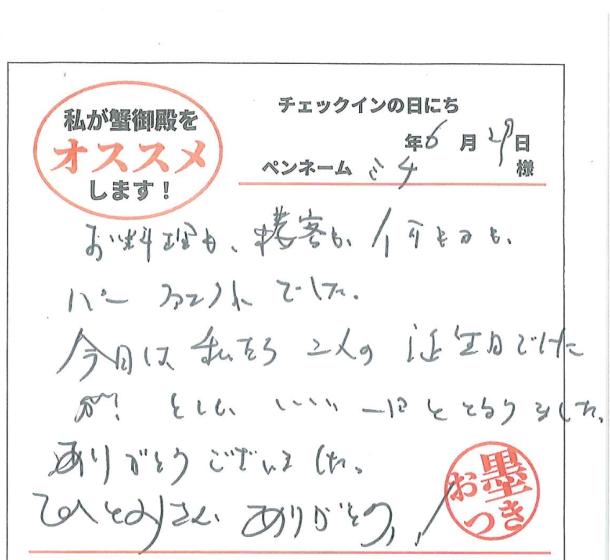 私が蟹御殿を
オススメ
します！
チェックインの日にち
年6月29日
ペンネーム 様
お料理も、接客も、何もかも、
パーフェクトでした。
今日は私たち二人の誕生日でした
が、とてもいい一日となりました。
ありがとうございました。
さん、ありがとう、！
お墨つき